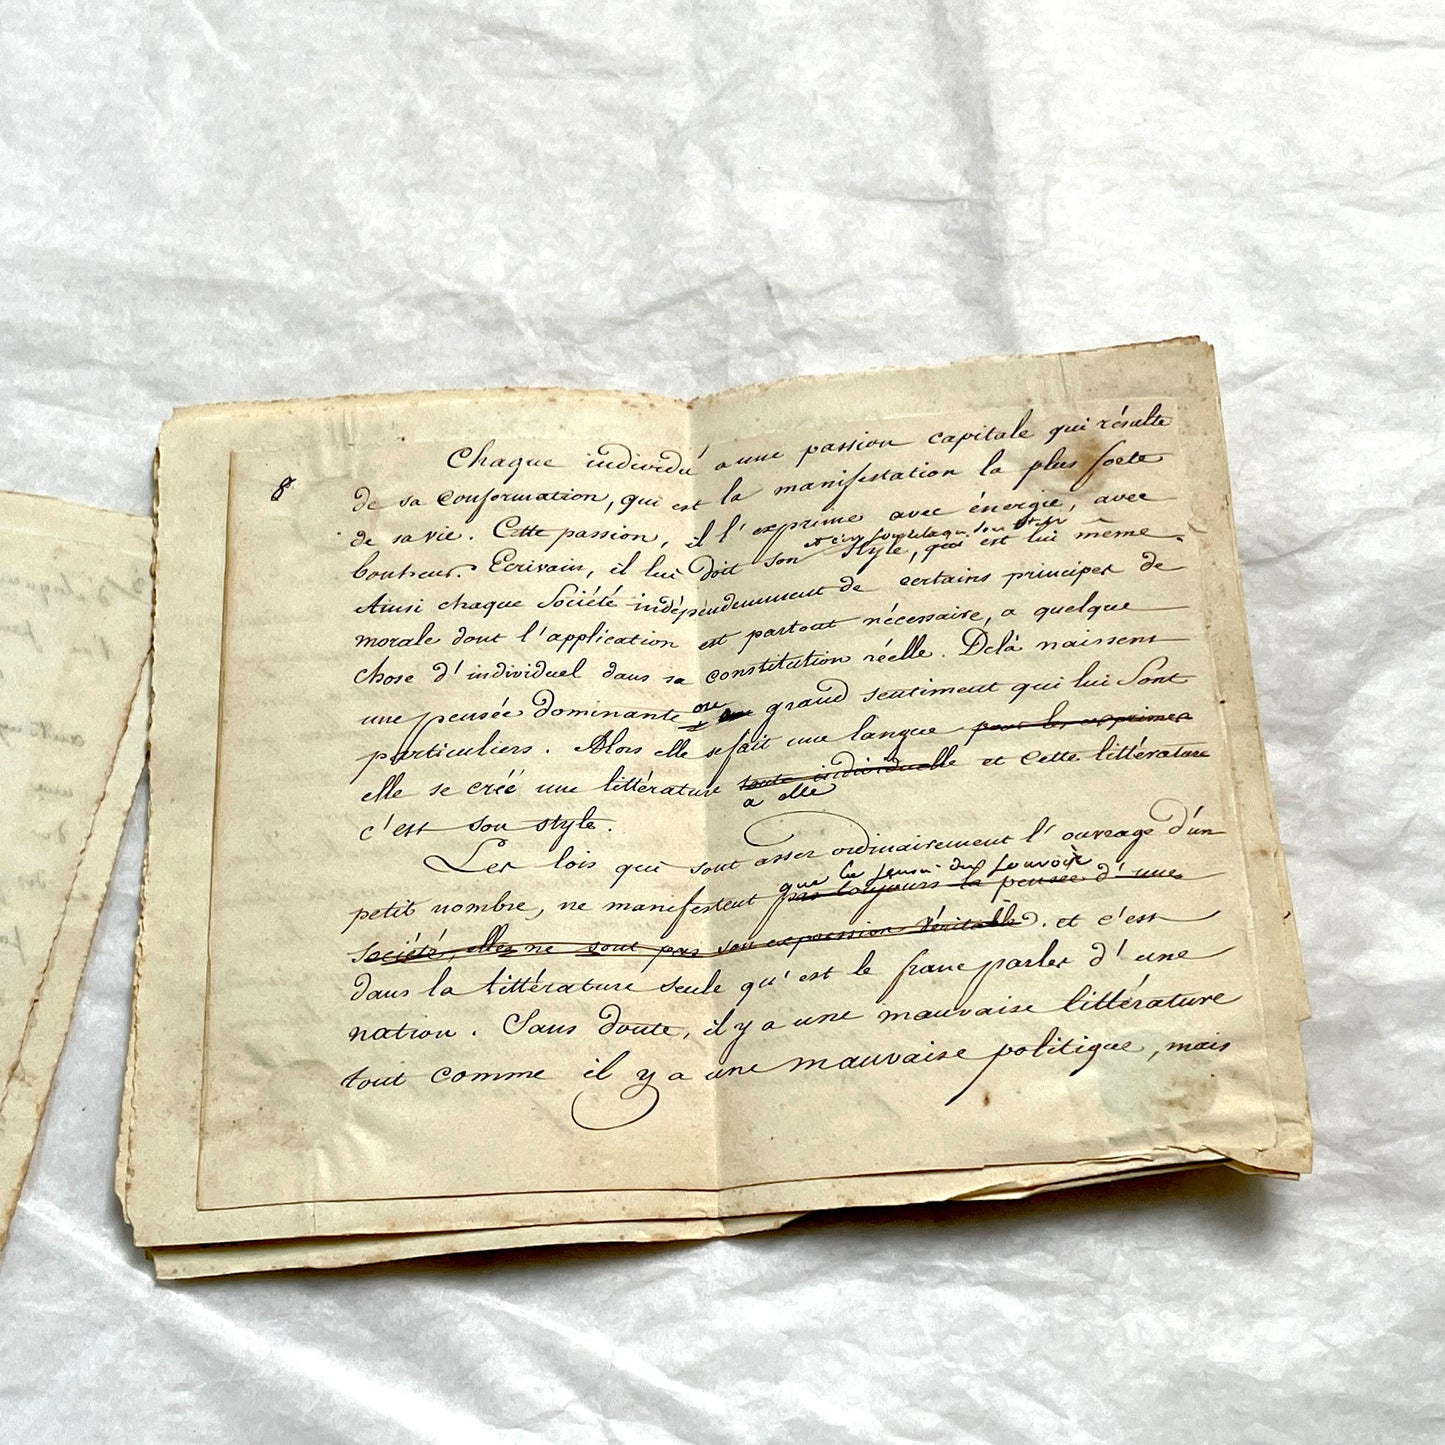 8
Chaque individu a une passion capitale qui résulte
de sa conformation, qui est la manifestation la plus forte
de sa vie. Cette passion, il l'exprime avec énergie, avec
bonheur. Ecrivain, il lui doit son style, qui est lui même.
Ainsi chaque Société indépendemment de certains principes de
morale dont l'application est partout nécessaire, a quelque
chose d'individuel dans sa constitution réelle. Delà naissent
une pensée dominante ou grand sentiment qui lui sont
particuliers. Alors elle se fait une langue pour les exprimer
elle se créé une littérature toute individuelle et cette littérature
a elle
c'est son style.
Les lois qui sont assez ordinairement l'ouvrage d'un
que le pouvoir
petit nombre, ne manifestent pas toujours la pensée d'une
Société, elles ne sont pas son expression véritable. et c'est
dans la littérature seule qu'est le franc parler d'une
nation. Sans doute, il y a une mauvaise littérature
tout comme il y a une mauvaise politique, mais